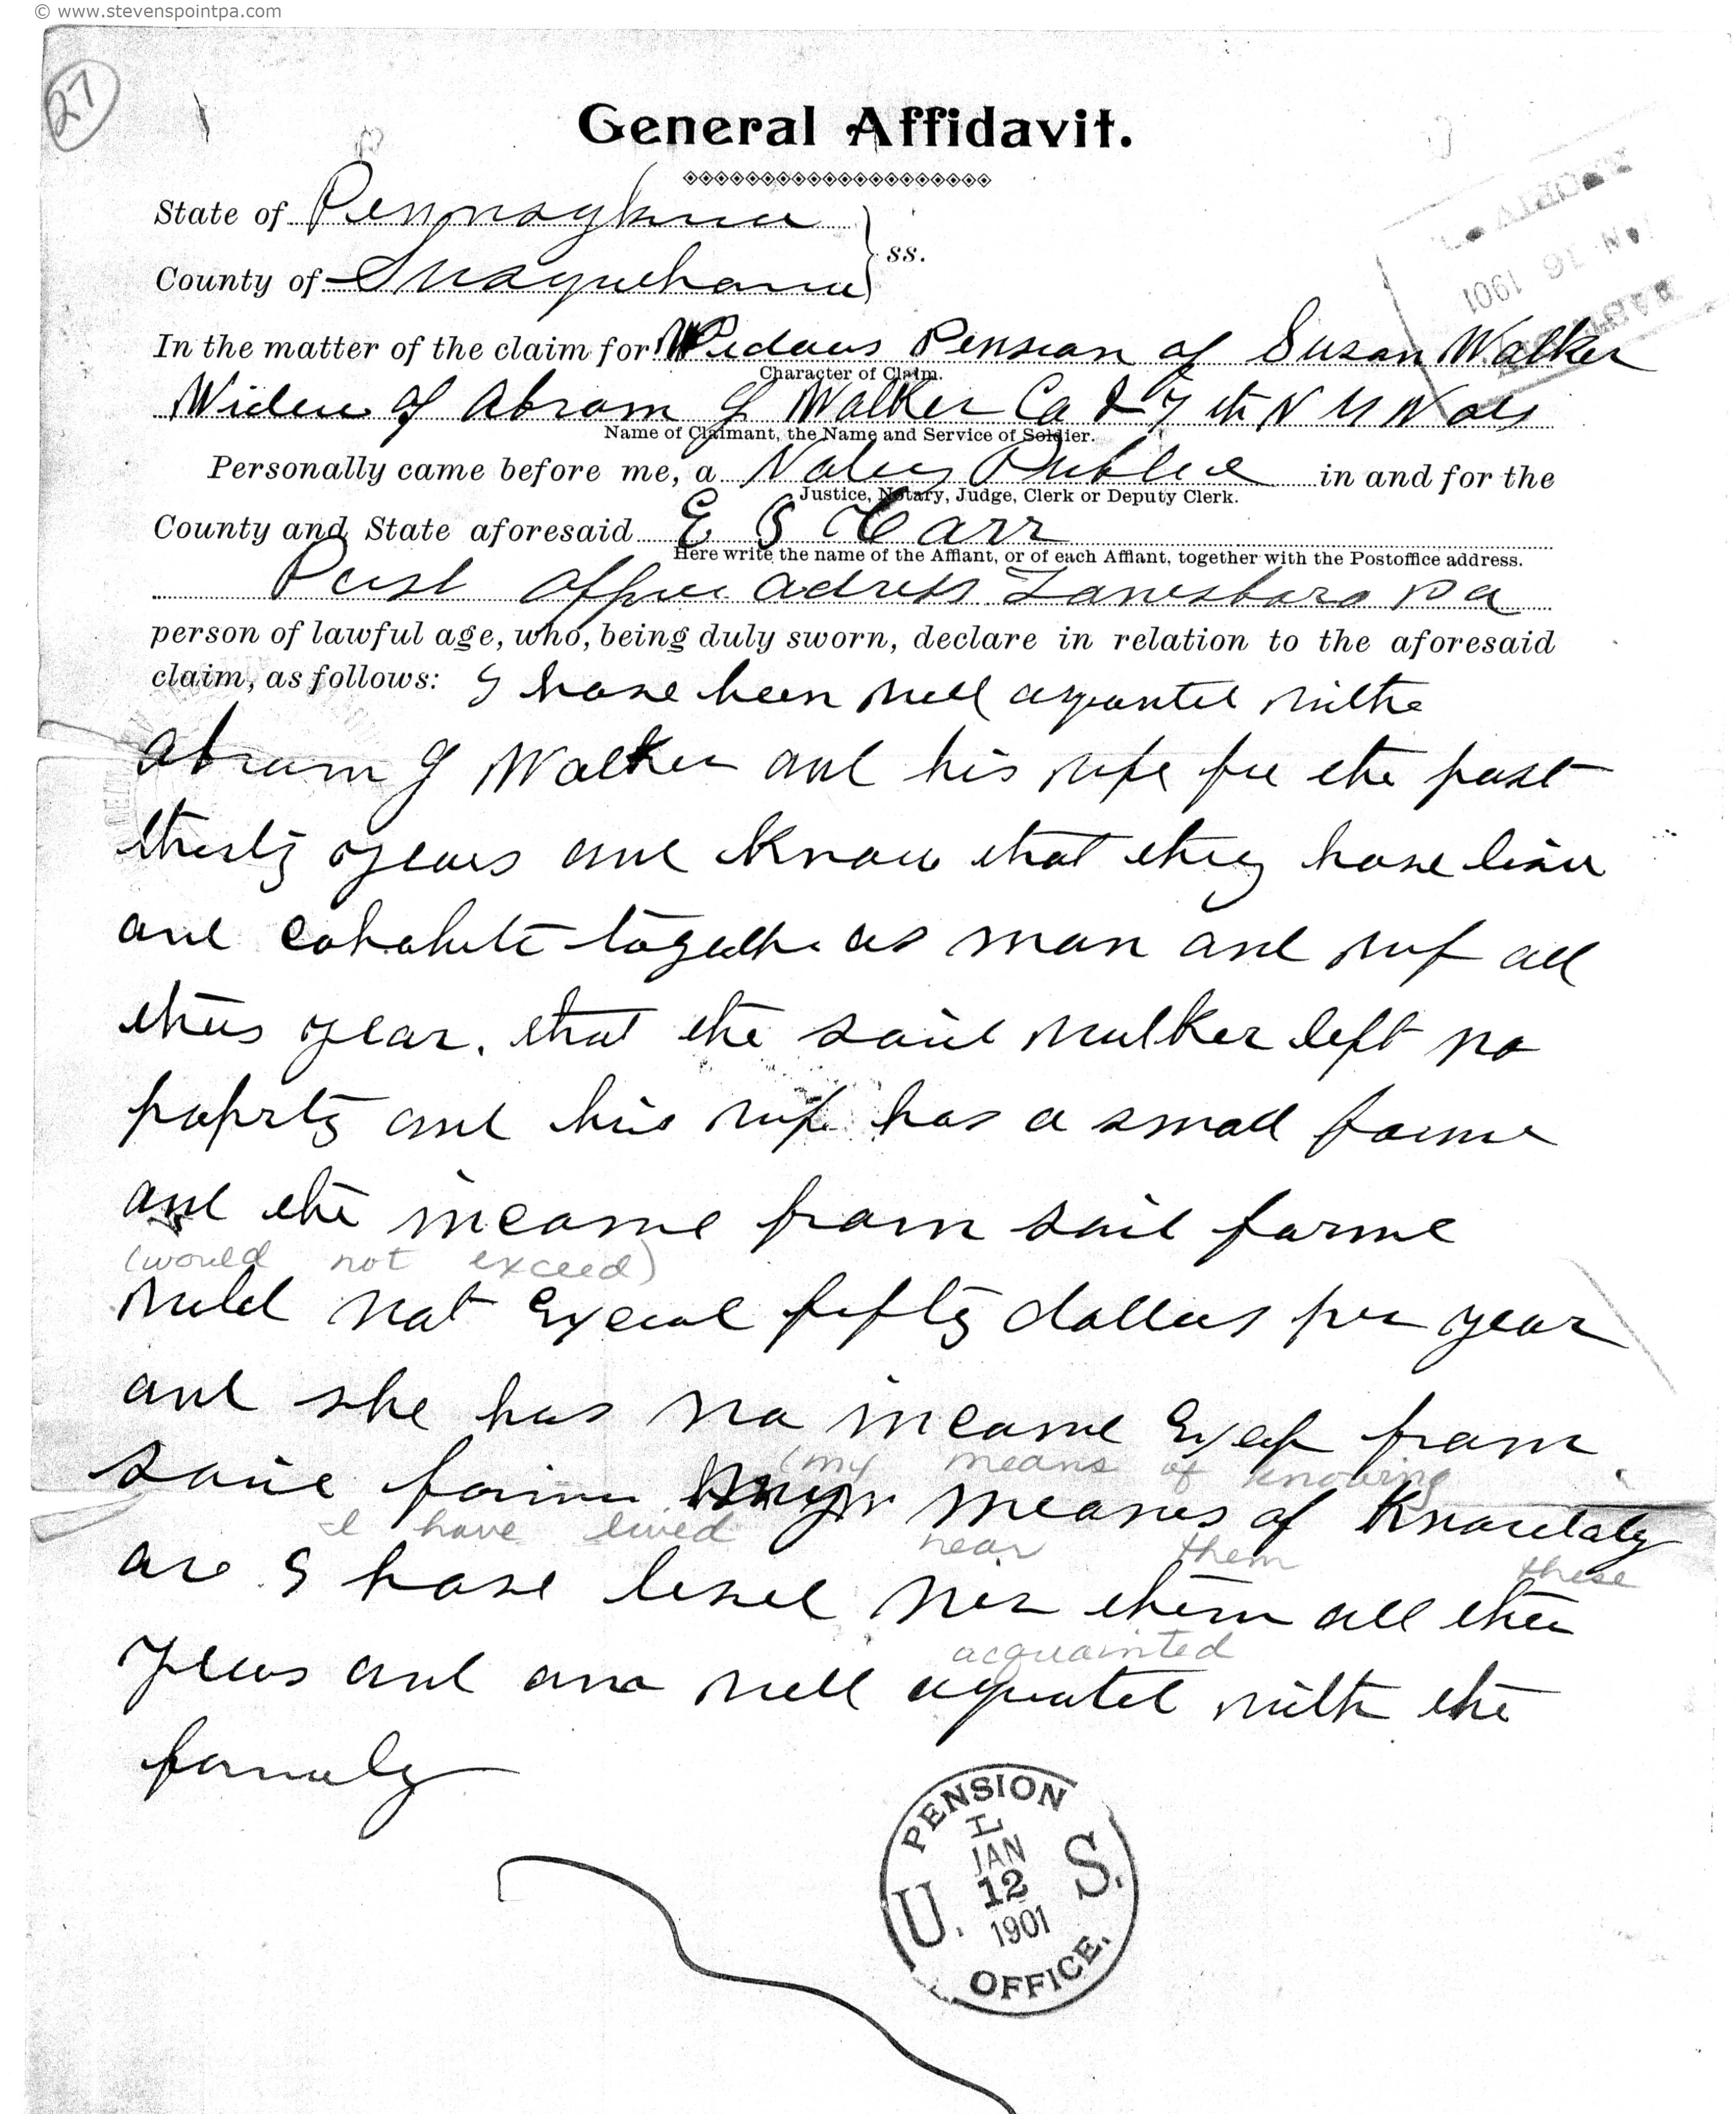 © www.stevenspointpa.com
27
General Affidavit.
State of Pennsylvania
County of Susquehanna } ss.
1901
In the matter of the claim for Widows Pension of Susan Walker
Character of Claim.
Widow of Abram G Walker Co I 7th N Y Vols
Name of Claimant, the Name and Service of Soldier.
Personally came before me, a Notary Public in and for the
Justice, Notary, Judge, Clerk or Deputy Clerk.
County and State aforesaid E S Carr
Here write the name of the Affiant, or of each Affiant, together with the Postoffice address.
Post office adress Lanesboro Pa
person of lawful age, who, being duly sworn, declare in relation to the aforesaid
claim, as follows: I have been well aquanted withe
Abram G Walker and his wife for the past
thirty years and know that they have live
and cohabite togethe as man and wif all
thes year. that the said Walker left no
poprty and his wife has a small farme
and the income from said farme
(would not exceed)
would not Exceed fifty dollars per year
and she has no income Excep from
(my means of knowing
said farm my means of Knowledg
I have lived near them these
are I have lived ner them all thes
acquainted
years and am well aquated with the
family
PENSION
JAN
12
1901
U. S.
OFFICE.